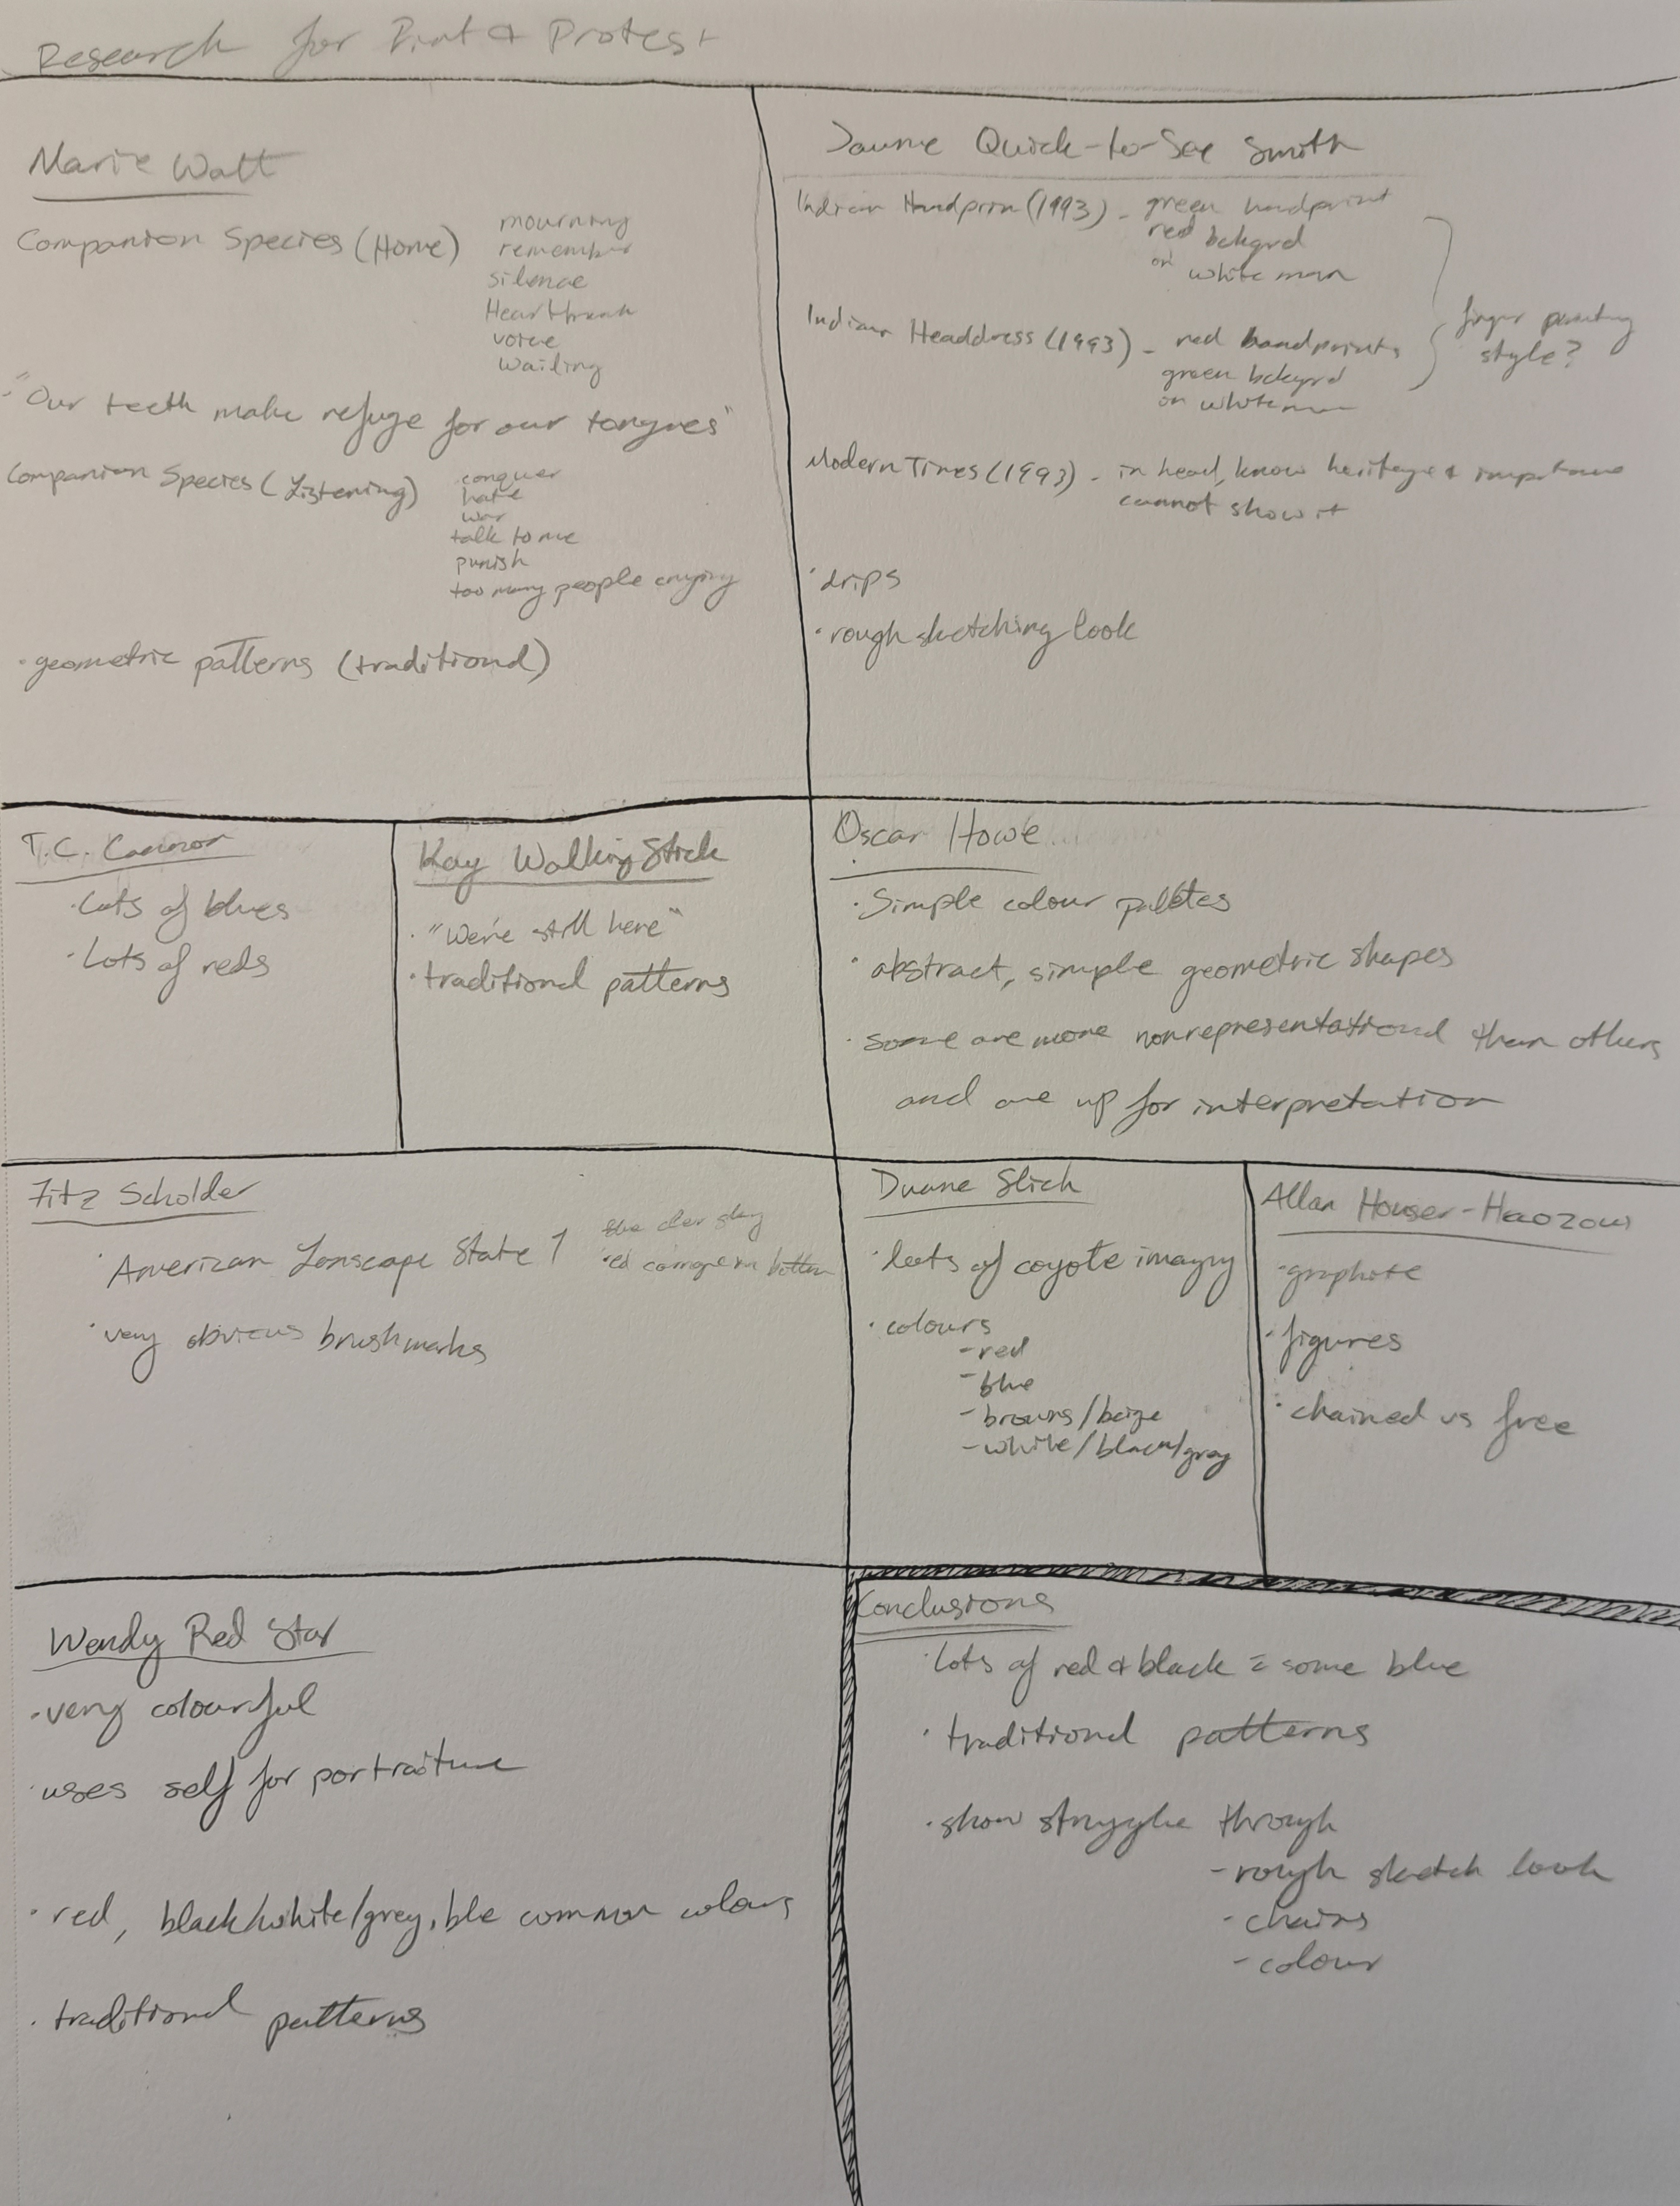 Research for Print & Protest
Marie Watt
Companion Species (Home)
mourning
remember
silence
Heartbreak
voice
wailing
"Our teeth make refuge for our tongues"
Companion Species (Listening)
conquer
hate
war
talk to me
punish
too many people crying
· geometric patterns (traditional)
Jaune Quick-to-See Smith
Indian Handprin (1993) - green handprint
red bckgrd
on white man
Indian Headdress (1993) - red handprints
green bckgrd
on white man
finger painting
style?
Modern Times (1993) - in head, know heritage & importance
cannot show it
· drips
· rough sketching look
T.C. Cannon
· Lots of blues
· Lots of reds
Kay WalkingStick
· "We're still here"
· traditional patterns
Oscar Howe
· Simple colour palettes
· abstract, simple geometric shapes
· some are more nonrepresentational than others
and are up for interpretation
Fitz Scholder
· American Lanscape State 1
red bottom
· very obvious brushmarks
Duane Slick
· lots of coyote imagry
· colours
- red
- blue
- browns/beige
- white/black/gray
Allan Houser-Haozous
· graphite
· figures
· chained vs free
Wendy Red Star
· very colourful
· uses self for portraiture
· red, black/white/grey, ble common colours
· traditional patterns
Conclusions
· lots of red & black = some blue
· traditional patterns
· show struggle through
- rough sketch look
- chains
- colour